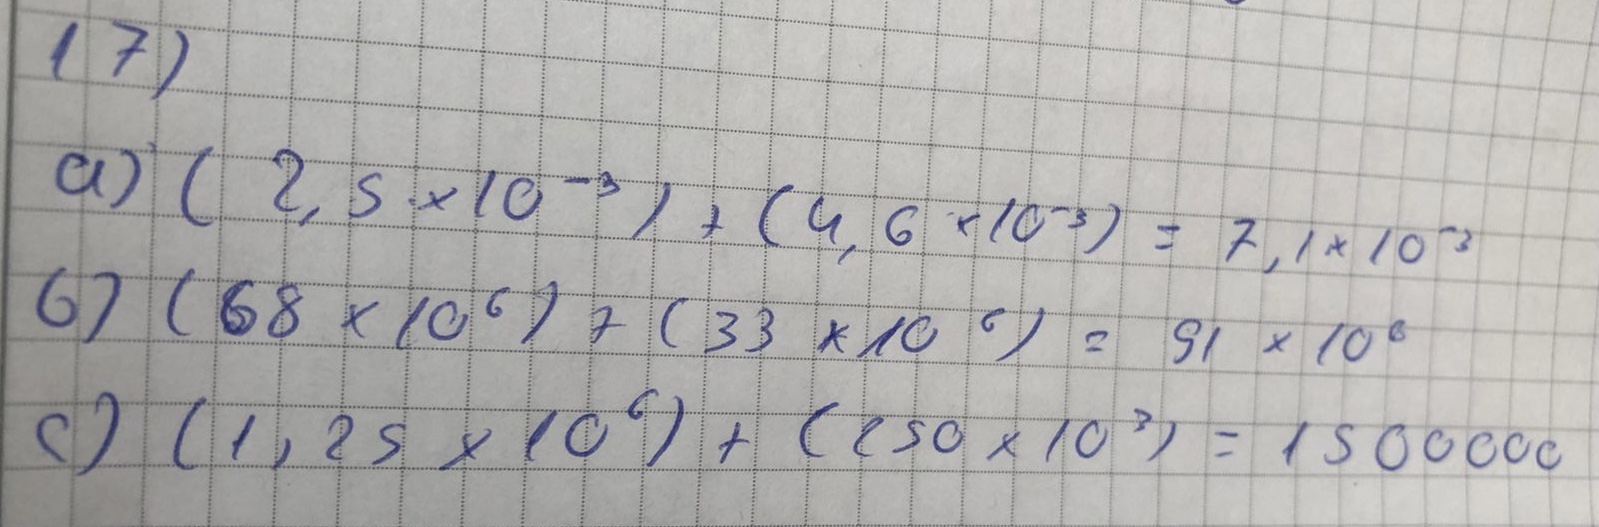 17)
a) ( 2,5 × 10⁻³ ) + (4,6 × 10⁻³) = 7,1 × 10⁻³
б) (68 × 10⁶) + (33 × 10⁶) = 91 × 10⁶
c) (1,25 × 10⁶) + (250 × 10³) = 1500000